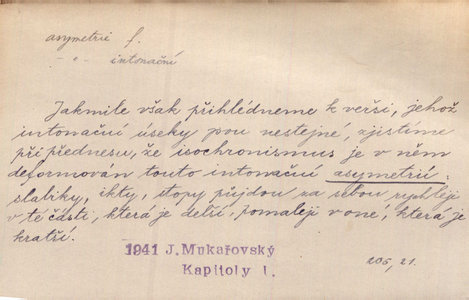 asymetrie f.
- " - intonační
Jakmile však přihlédneme k verši, jehož
intonační úseky jsou nestejné, zjistíme
při přednesu, že isochronismus je v něm
deformován touto intonační asymetrií:
slabiky, ikty, stopy půjdou za sebou rychleji
v té části, která je delší, pomaleji v one, která je
kratší.
1941 J. Mukařovský
Kapitoly I.
205, 21.